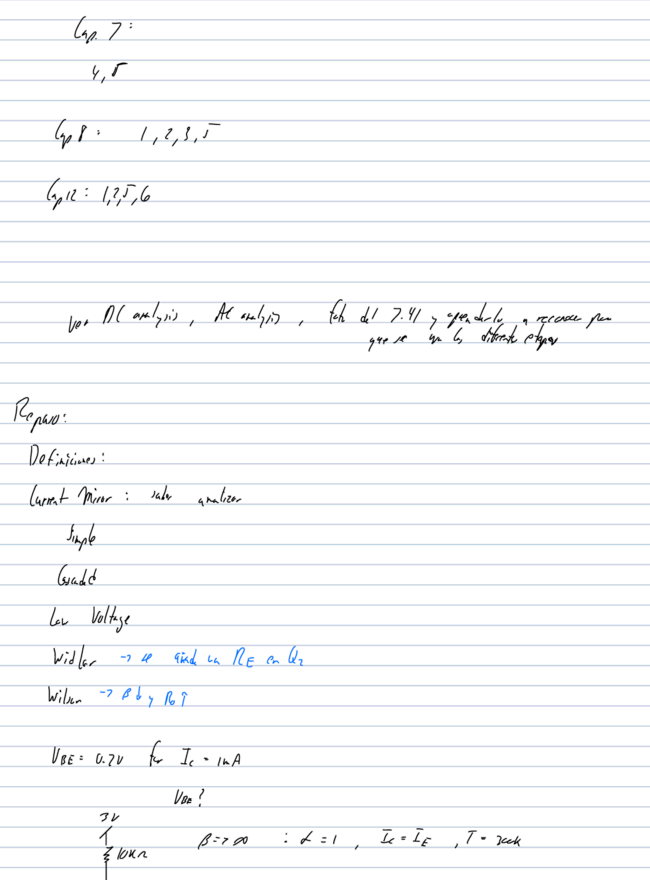 Cap. 7:
4, 5
Cap 8: 1, 2, 3, 5
Cap 12: 1, 2, 5, 6
ver DC analysis, AC analysis, foto del 7.41 y aprenderlo a reconocer para
que se usa los diferente etapas
Repaso:
Definiciones:
Current Mirror: saber analizar
Simple
Cascaded
Low Voltage
Widlar → se añade un RE en Q2
Wilson → β ↓ y Ro ↑
VBE = 0.7V for Ic = 1mA
VBE?
3V
β => ∞ : α = 1, Ic = IE, T = 300k
10KΩ